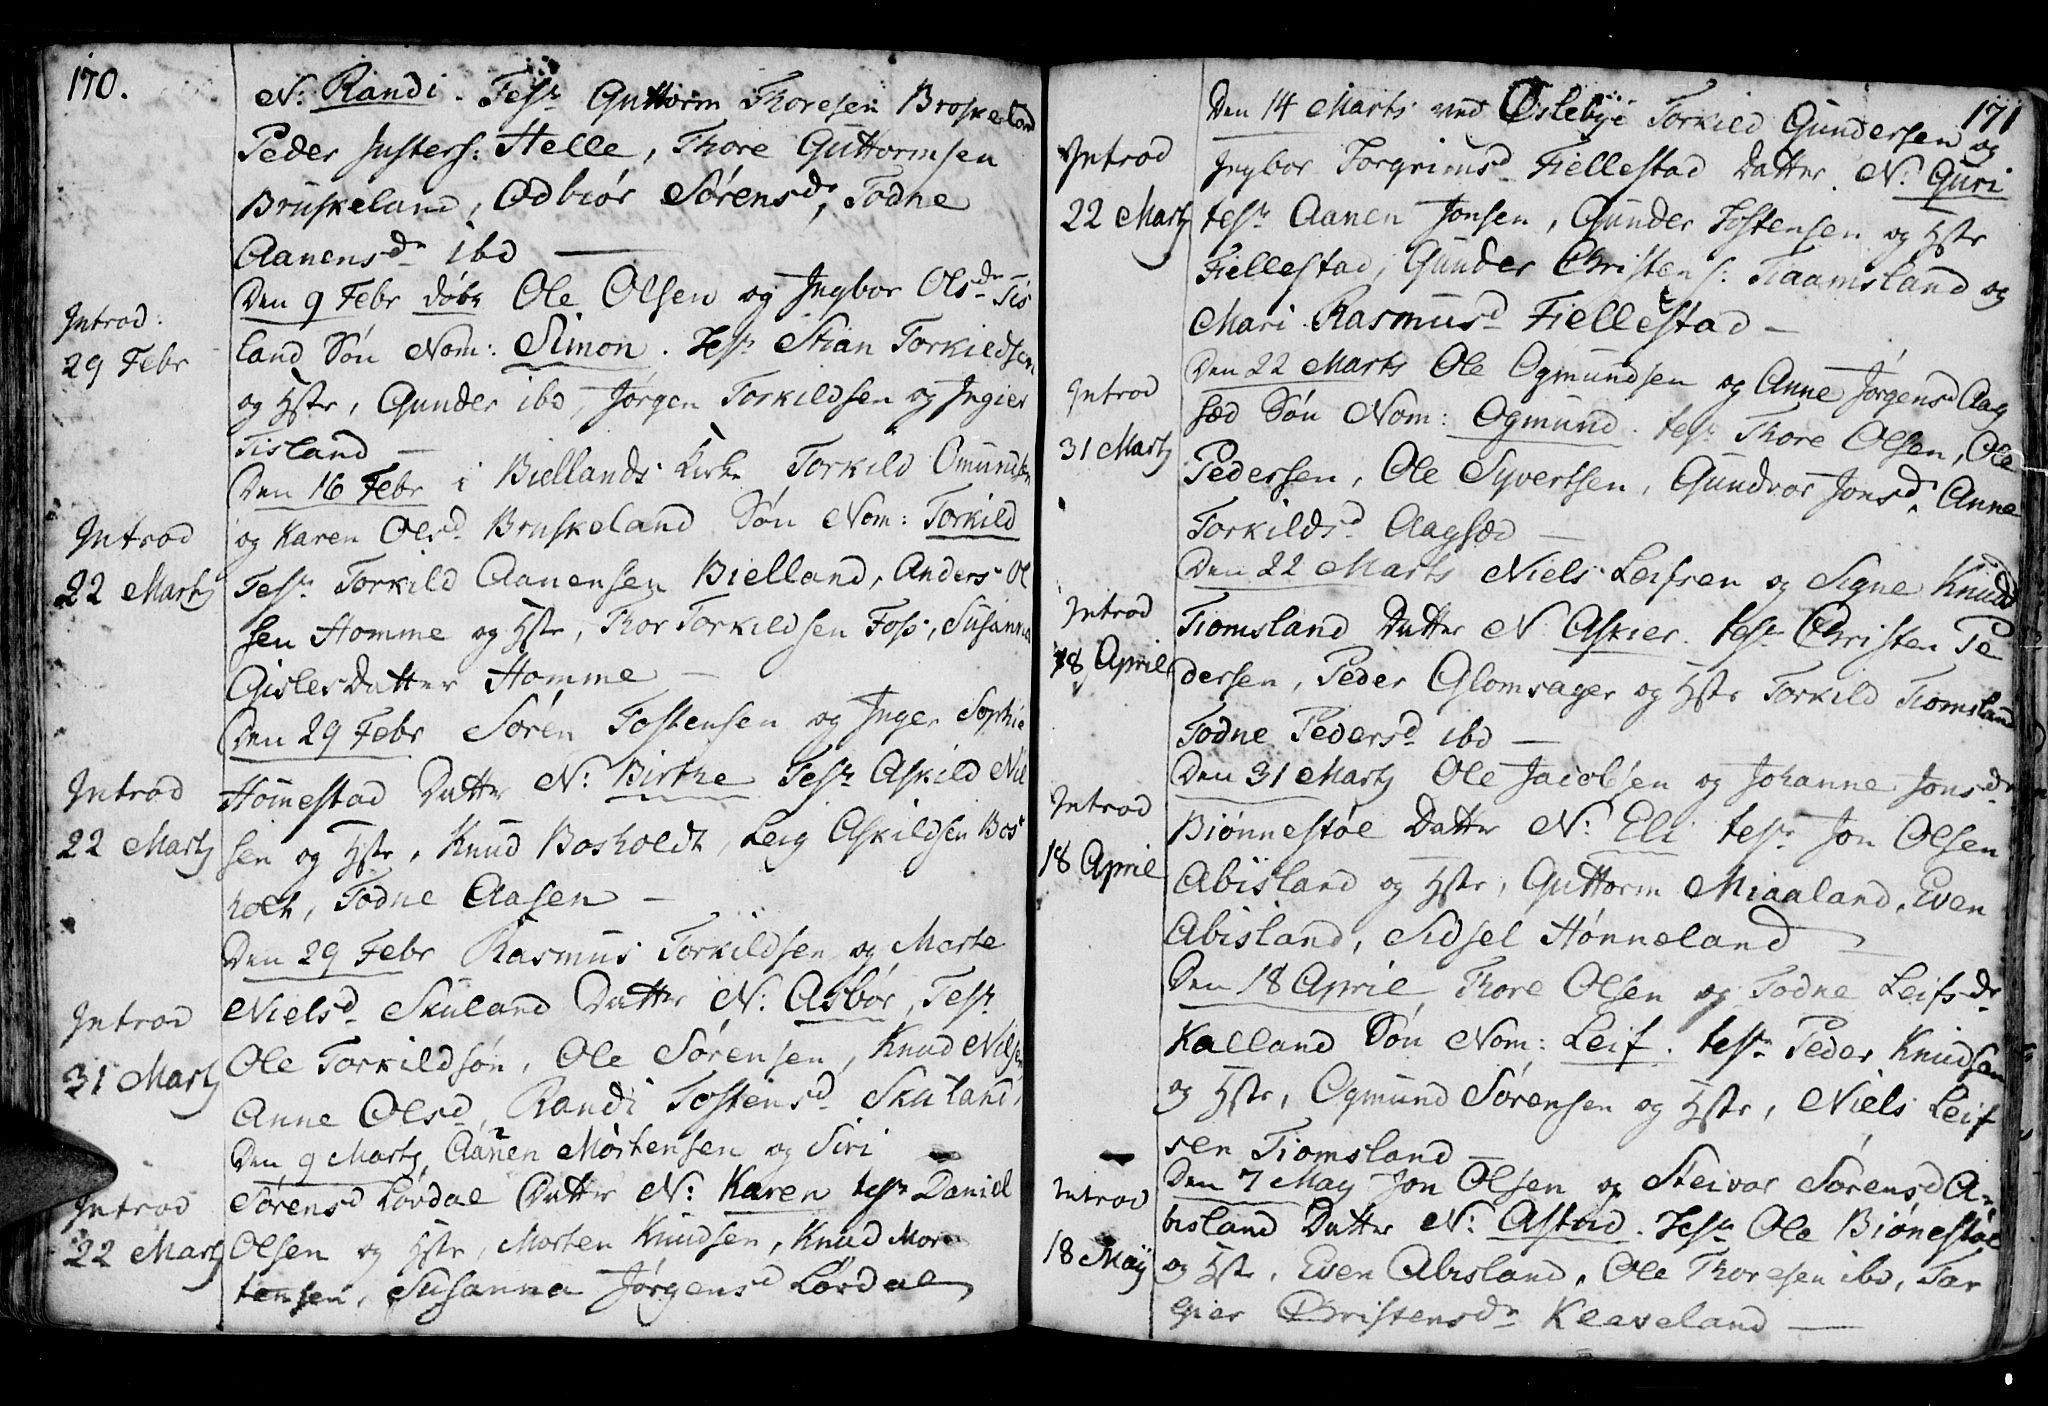 170.
N: Randi. Test: Guttorm Thoresen Bruskeland
Peder Justers: Helle, Thore Guttormsen
Bruskeland, Odbiør Sørensd, Todne
Aanensdr ibd
Introd:
29 Febr
Den 9 Febr døbt Ole Olsen og Ingbor Olsdr Tis
land Søn Nom: Simon. Test Stian Torkildsen
og Hstr, Gunder ibd, Jørgen Torkildsen og Ingier
Tisland
Introd
22 Marts
Den 16 Febr i Biellands Kirke Torkild Omundsen
og Karen Olsd Bruskeland Søn Nom: Torkild
Test Torkild Aanensen Bielland, Anders Ol
sen Homme og Hstr, Thor Torkildsen Foss, Susanna
Gislesdatter Homme
Introd
22 Marts
Den 29 Febr Søren Tostensen og Inger Sophie
Homestad Datter N: Birthe Test Askild Niel
sen og Hstr, Knud Bosholdt, Leig Askildsen Bos
holt, Todne Aasen
Introd
31 Marts
Den 29 Febr Rasmus Torkildsen og Marte
Nielsd Skuland Datter N: Asbør, Test
Ole Torkildsøn, Ole Sørensen, Knud Nilsen
Anne Olsd, Randi Tostensd Skuland,
Introd
22 Marts
Den 9 Marts Aanen Mortensen og Siri
Sørensd Lovdal Datter N: Karen test Daniel
Olsen og Hstr, Morten Knudsen, Knud Mor
tensen, Susanna Jørgensd Løvdal
171
Introd
22 Marts
Den 14 Marts ved Øslebye Torkild Gundersen og
Ingbor Torgrimsd Fiellestad Datter N: Guri
test Aanen Jonsen, Gunder Tostensen og Hstr
Fiellestad, Gunder Christens: Tiaamsland og
Mari Rasmusd Fiellestad
Introd
31 Marts
Den 22 Marts Ole Ogmundsen og Anne Jørgensd Aag
sæd Søn Nom: Ogmund. test Thore Olsen, Ole
Pedersen, Ole Syvertsen, Gundvor Jonsd, Anne
Torkildsd Aagsæd
Introd
18 April
Den 22 Marts Niels Leifsen og Signe Knudsd
Tiomsland Datter N Askier. test Christen Pe
dersen, Peder Glomsager og Hstr Torkild Tiomsland
Todne Pedersd ibd
Introd
18 April
Den 31 Marts Ole Jacobsen og Johanne Jonsdr
Biønnestøl Datter N: Eli test Jon Olsen
Abisland og Hstr, Guttorm Miaaland, Even
Abisland, Sidsel Hønneland
Den 18 April Thore Olsen og Todne Leifsdr
Kalland Søn Nom: Leif. test Peder Knudsen
og Hstr, Ogmund Sørensen og Hstr, Niels Leif
sen Tiomsland
Introd
18 May
Den 7 May Jon Olsen og Steivor Sørensd A-
bisland Datter N: Astad. Test Ole Biønestøl
og Hstr, Even Abisland, Ole Thoresen ibd, Tar
gier Christensdr Kleveland